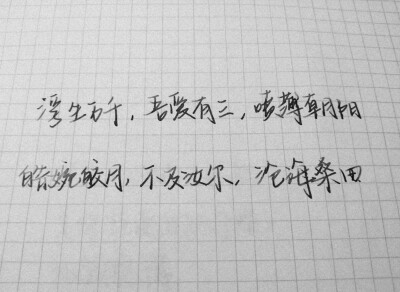 浮生万千，吾爱有三，喷薄朝阳
皓婉皎月，不及汝尔，沧海桑田